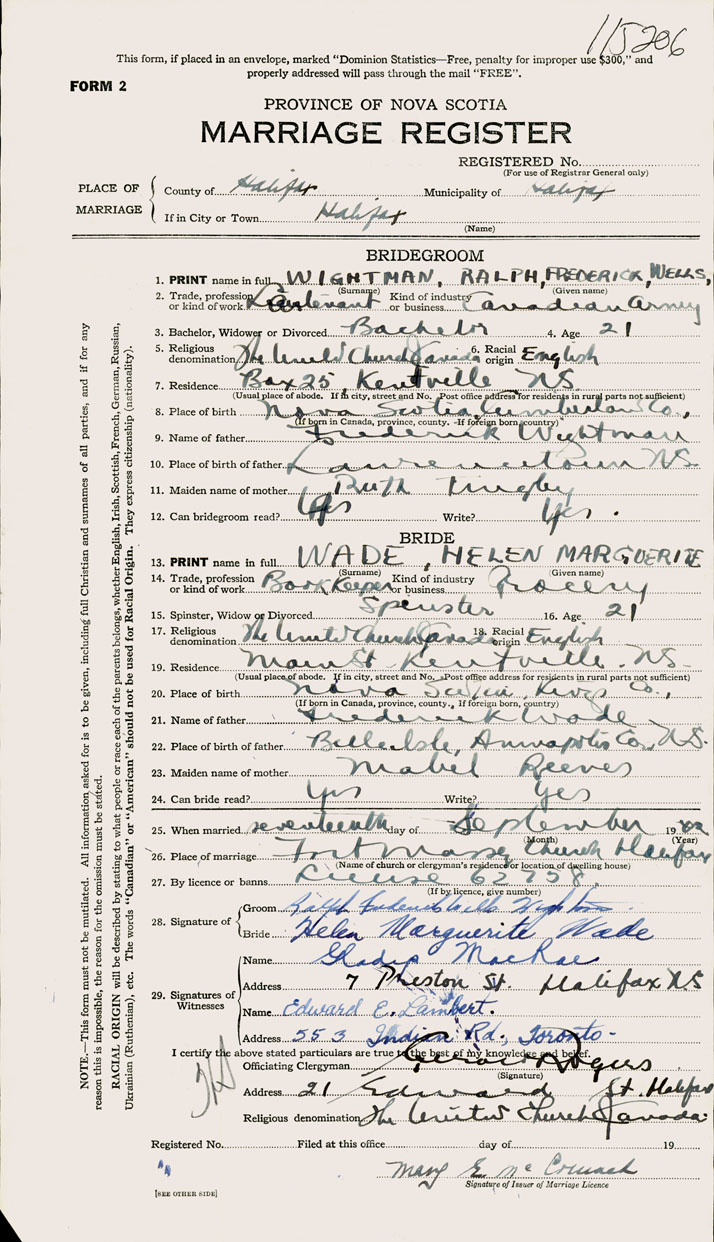 115206
This form, if placed in an envelope, marked "Dominion Statistics—Free, penalty for improper use $300," and
properly addressed will pass through the mail "FREE".
FORM 2
PROVINCE OF NOVA SCOTIA
MARRIAGE REGISTER
REGISTERED No.
(For use of Registrar General only)
PLACE OF MARRIAGE
County of Halifax Municipality of Halifax
If in City or Town Halifax
(Name)
BRIDEGROOM
1. PRINT name in full WIGHTMAN, RALPH, FREDERICK, WELLS,
(Surname) (Given name)
2. Trade, profession or kind of work Lieutenant Kind of industry or business Canadian Army
3. Bachelor, Widower or Divorced Bachelor 4. Age 21
5. Religious denomination The United Church Canada 6. Racial origin English
7. Residence Box 25, Kentville NS.
(Usual place of abode. If in city, street and No. Post office address for residents in rural parts not sufficient)
8. Place of birth Nova Scotia, Cumberland Co.,
(If born in Canada, province, county. If foreign born, country)
9. Name of father Frederick Wightman
10. Place of birth of father Lawrencetown NS.
11. Maiden name of mother Ruth Tingley
12. Can bridegroom read? Yes Write? Yes.
BRIDE
13. PRINT name in full WADE, HELEN MARGUERITE
(Surname) (Given name)
14. Trade, profession or kind of work Book Keeper Kind of industry or business Grocery
15. Spinster, Widow or Divorced Spinster 16. Age 21
17. Religious denomination The United Church Canada 18. Racial origin English
19. Residence Main St Kentville. NS.
(Usual place of abode. If in city, street and No. Post office address for residents in rural parts not sufficient)
20. Place of birth Nova Scotia, Kings Co.,
(If born in Canada, province, county., If foreign born, country)
21. Name of father Frederick Wade
22. Place of birth of father Belleisle, Annapolis Co., N.S.
23. Maiden name of mother Mabel Reeves
24. Can bride read? Yes Write? Yes
25. When married seventeenth day of September 1942
(Month) (Year)
26. Place of marriage Fort Massey Church Halifax
(Name of church or clergyman's residence or location of dwelling house)
27. By licence or banns License 62758
(If by licence, give number)
28. Signature of
Groom Ralph Frederick Wells Wightman
Bride Helen Marguerite Wade
29. Signatures of Witnesses
Name Gladys MacRae
Address 7 Preston St. Halifax NS
Name Edward E. Lambert.
Address 553 Indian Rd., Toronto.
I certify the above stated particulars are true to the best of my knowledge and belief.
Officiating Clergyman Rogers
(Signature)
Address 21 Edward St. Halifax
Religious denomination The United Church Canada
Registered No. Filed at this office day of 19
Mary E. McCormack
Signature of Issuer of Marriage Licence
[SEE OTHER SIDE]
NOTE.—This form must not be mutilated. All information asked for is to be given, including full Christian and surnames of all parties, and if for any
reason this is impossible, the reason for the omission must be stated.
RACIAL ORIGIN will be described by stating to what people or race each of the parents belongs, whether English, Irish, Scottish, French, German, Russian,
Ukrainian (Ruthenian), etc. The words "Canadian" or "American" should not be used for Racial Origin. They express citizenship (nationality).